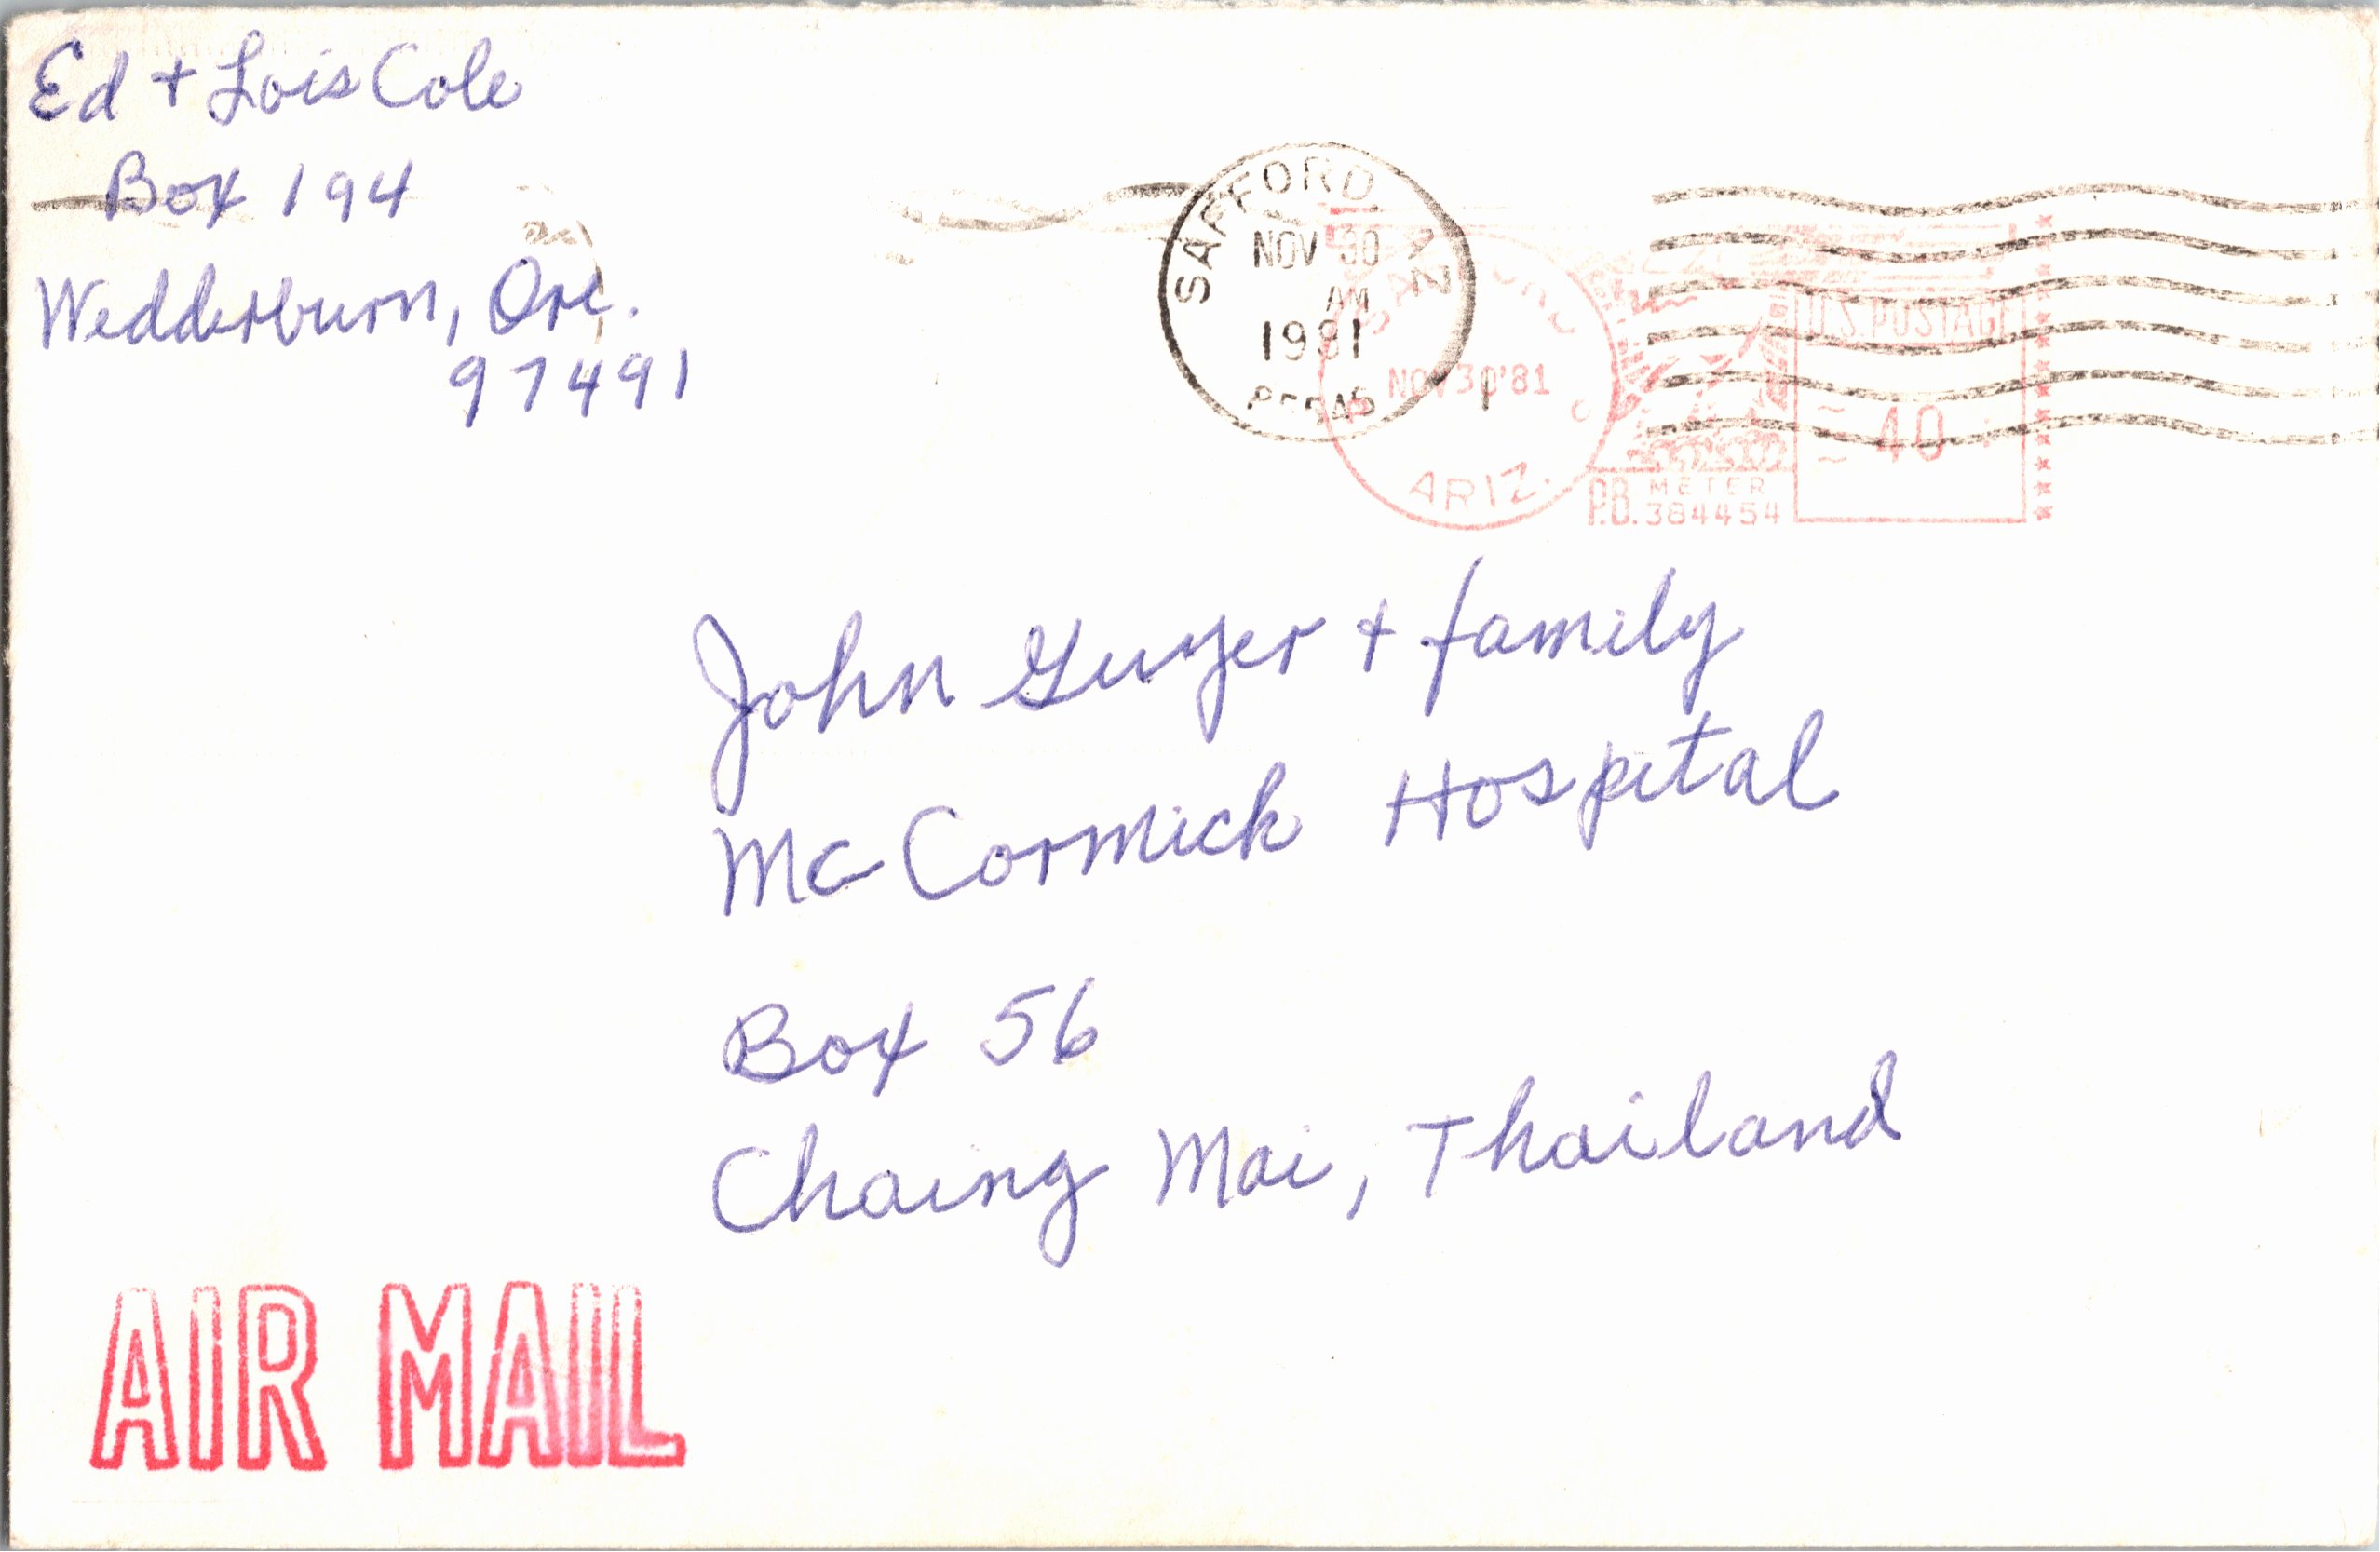 Ed + Lois Cole
Box 194
Wedderburn, Ore.
97491
SAFFORD AZ
NOV 30
AM
1981
NOV 30 '81
ARIZ.
U.S. POSTAGE
40
P.B. METER
384454
John Guyer + family
McCormick Hospital
Box 56
Chaing Mai, Thailand
AIR MAIL